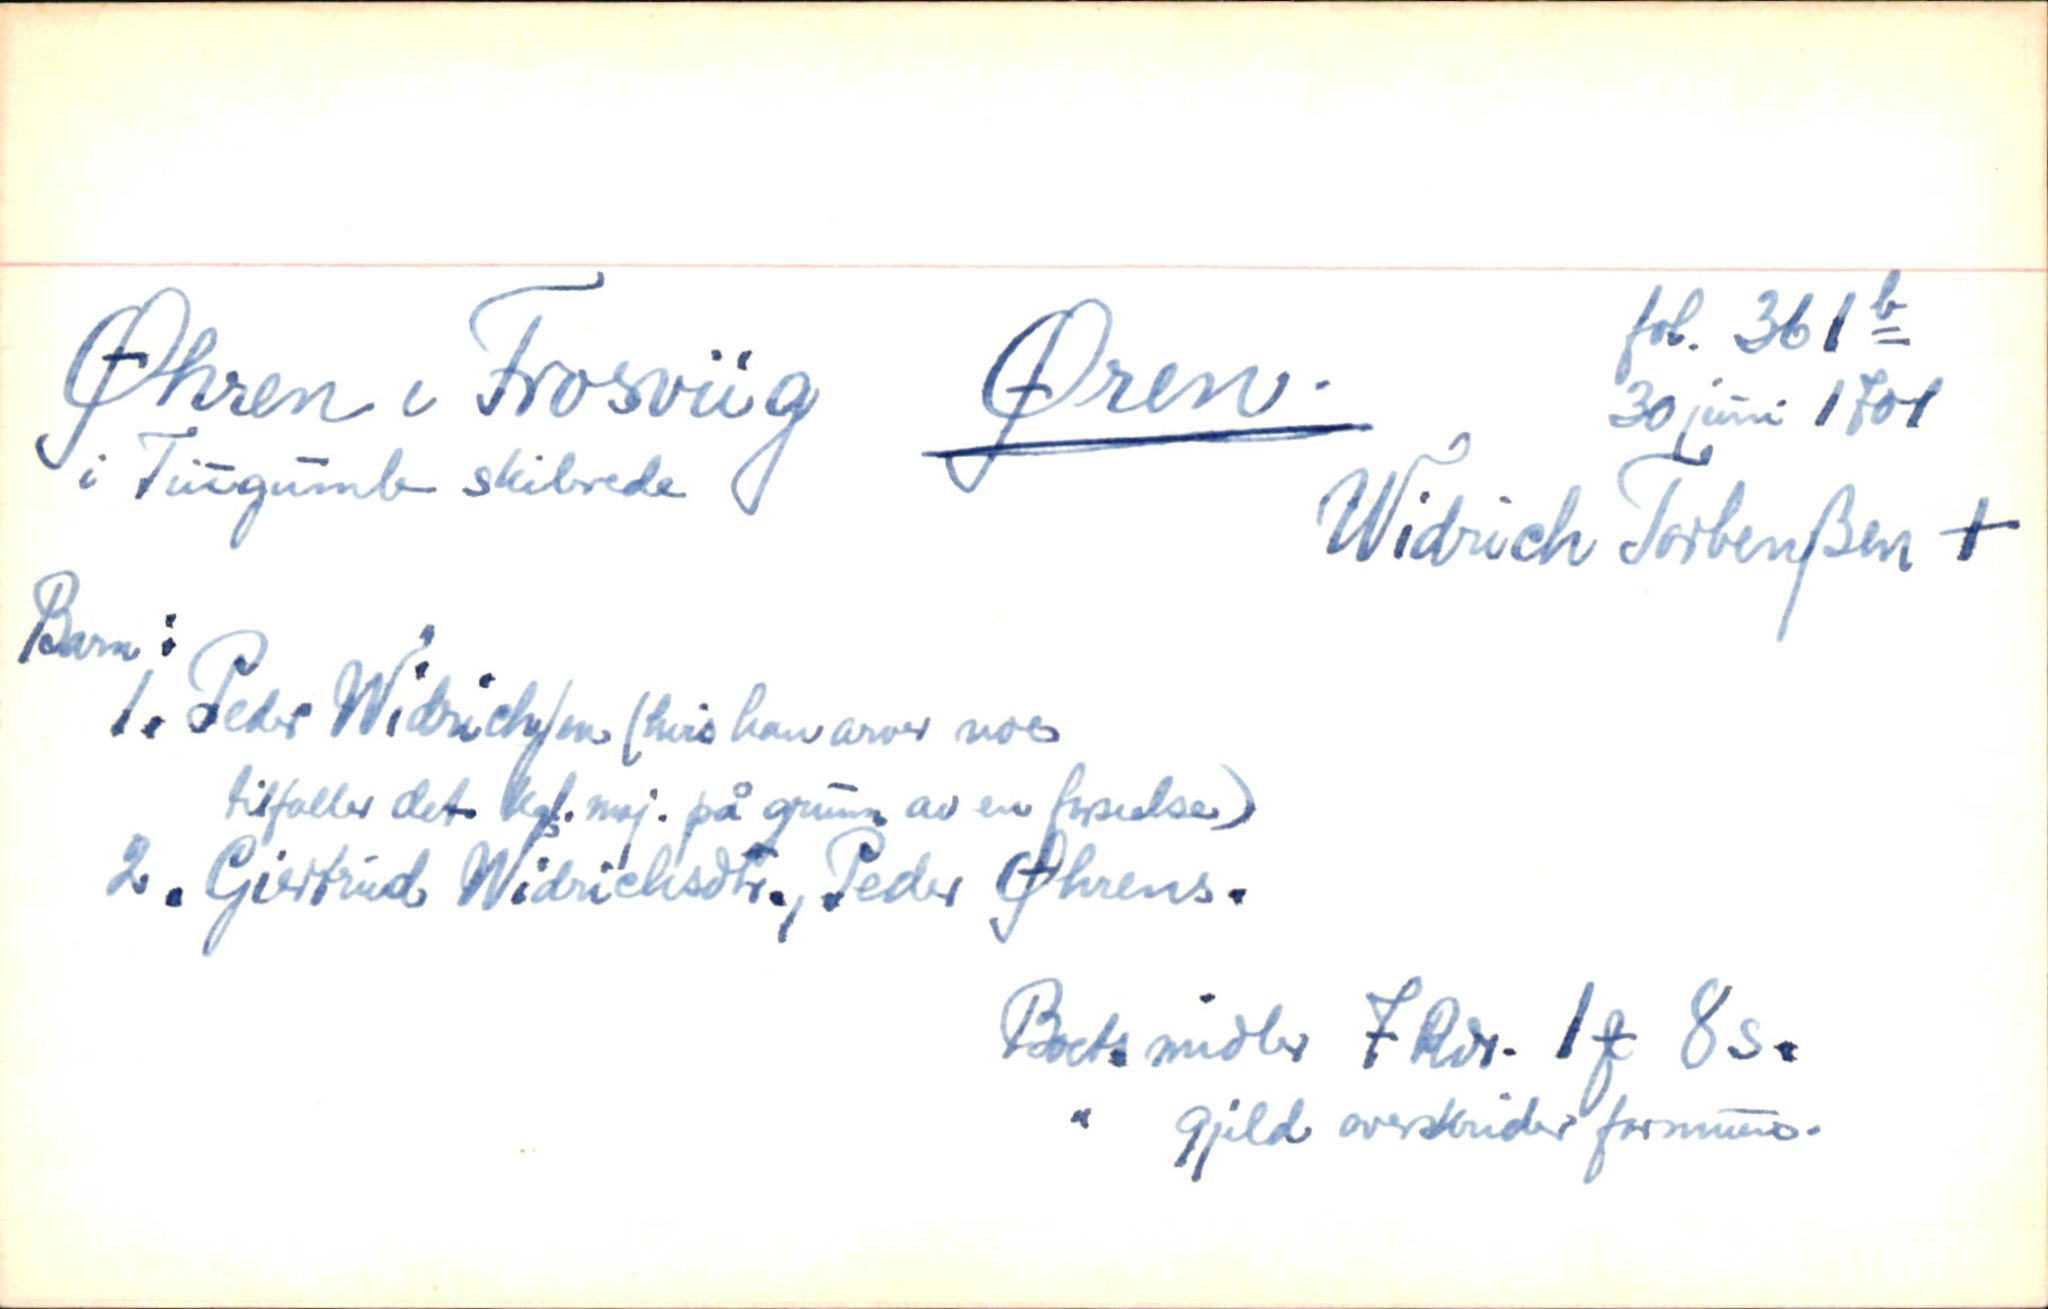 Øhren i Frosviig Øren. fol. 361 b
i Tuugumb skibrede 30 juni 1701
Widrich Torbenßen +
Barn:
1. Peder Widrichsen (hvis han arver noe
tilfaller det kgl. maj. på grunn av en forseelse)
2. Giertrud Widrichsdtr., Peder Øhrens.
Boets midler 7 Rdr. 1 f 8 s.
" gjeld overskrider formuen.